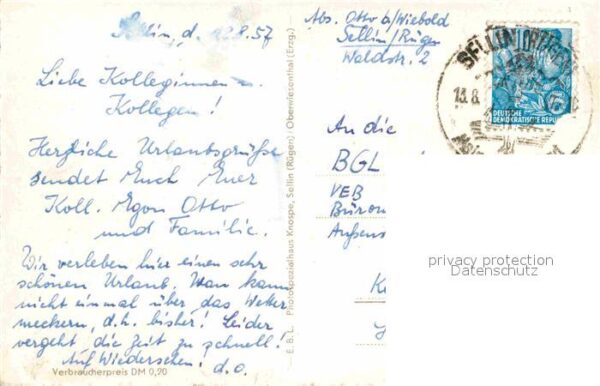 Sellin, d. 12.8.57
Liebe Kolleginnen u.
Kollegen!
Herzliche Urlaubsgrüße
sendet Euch Euer
Koll. Egon Otto
und Familie.
Wir verleben hier einen sehr
schönen Urlaub. Man kann
nicht einmal über das Wetter
meckern, d.h. bisher! Leider
vergeht die Zeit zu schnell!
Auf Wiedersehen! d.o.
Verbraucherpreis DM 0,20
E.B.L. Photospezialhaus Knospe, Sellin (Rügen) / Oberwiesenthal (Erzg.)
Abs. Otto b/Wiebold
Sellin/Rügen
Waldstr. 2
SELLIN (RÜGEN)
13.8.
DEUTSCHE
DEMOKRATISCHE REPUBLIK
An die
BGL
VEB
Büro
Außens
privacy protection
Datenschutz